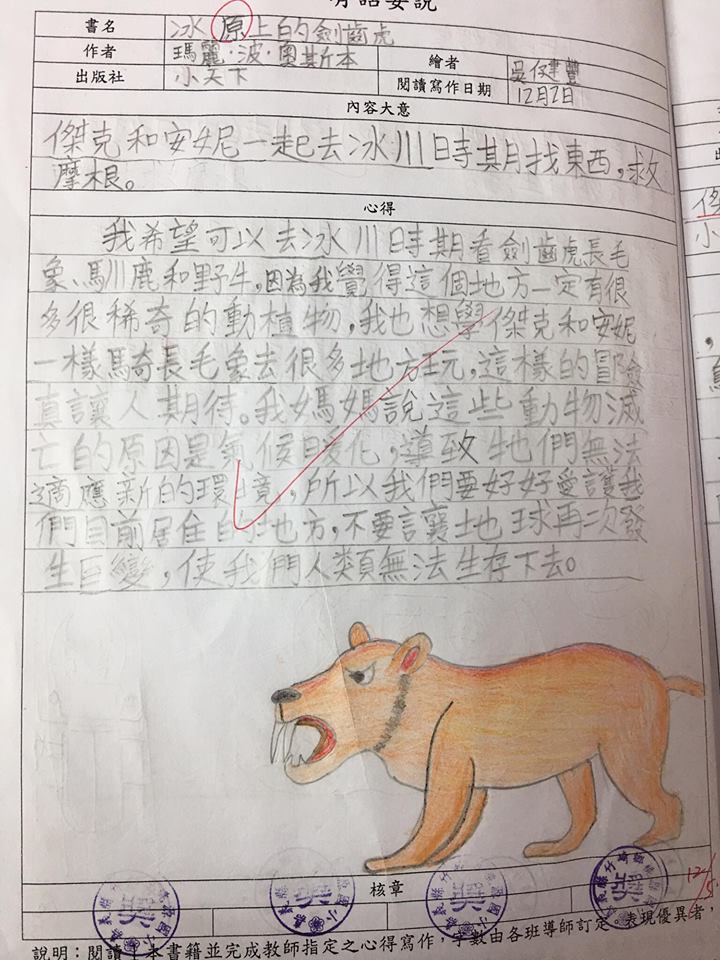 有話要說
書名 冰原上的劍齒虎
作者 瑪麗·波·奧斯本 繪者 吳健豐
出版社 小天下 閱讀寫作日期 12月2日
內容大意
傑克和安妮一起去冰川時期找東西,救
摩根。
心得
我希望可以去冰川時期看劍齒虎長毛
象、馴鹿和野牛,因為我覺得這個地方一定有很
多很稀奇的動植物,我也想學傑克和安妮
一樣騎長毛象去很多地方玩,這樣的冒險
真讓人期待。我媽媽說這些動物滅
亡的原因是氣候變化,導致牠們無法
適應新的環境,所以我們要好好愛護我
們目前居住的地方,不要讓地球再次發
生巨變,使我們人類無法生存下去。
核章
12/5
說明:閱讀一本書籍並完成教師指定之心得寫作,字數由各班導師訂定。表現優異者,